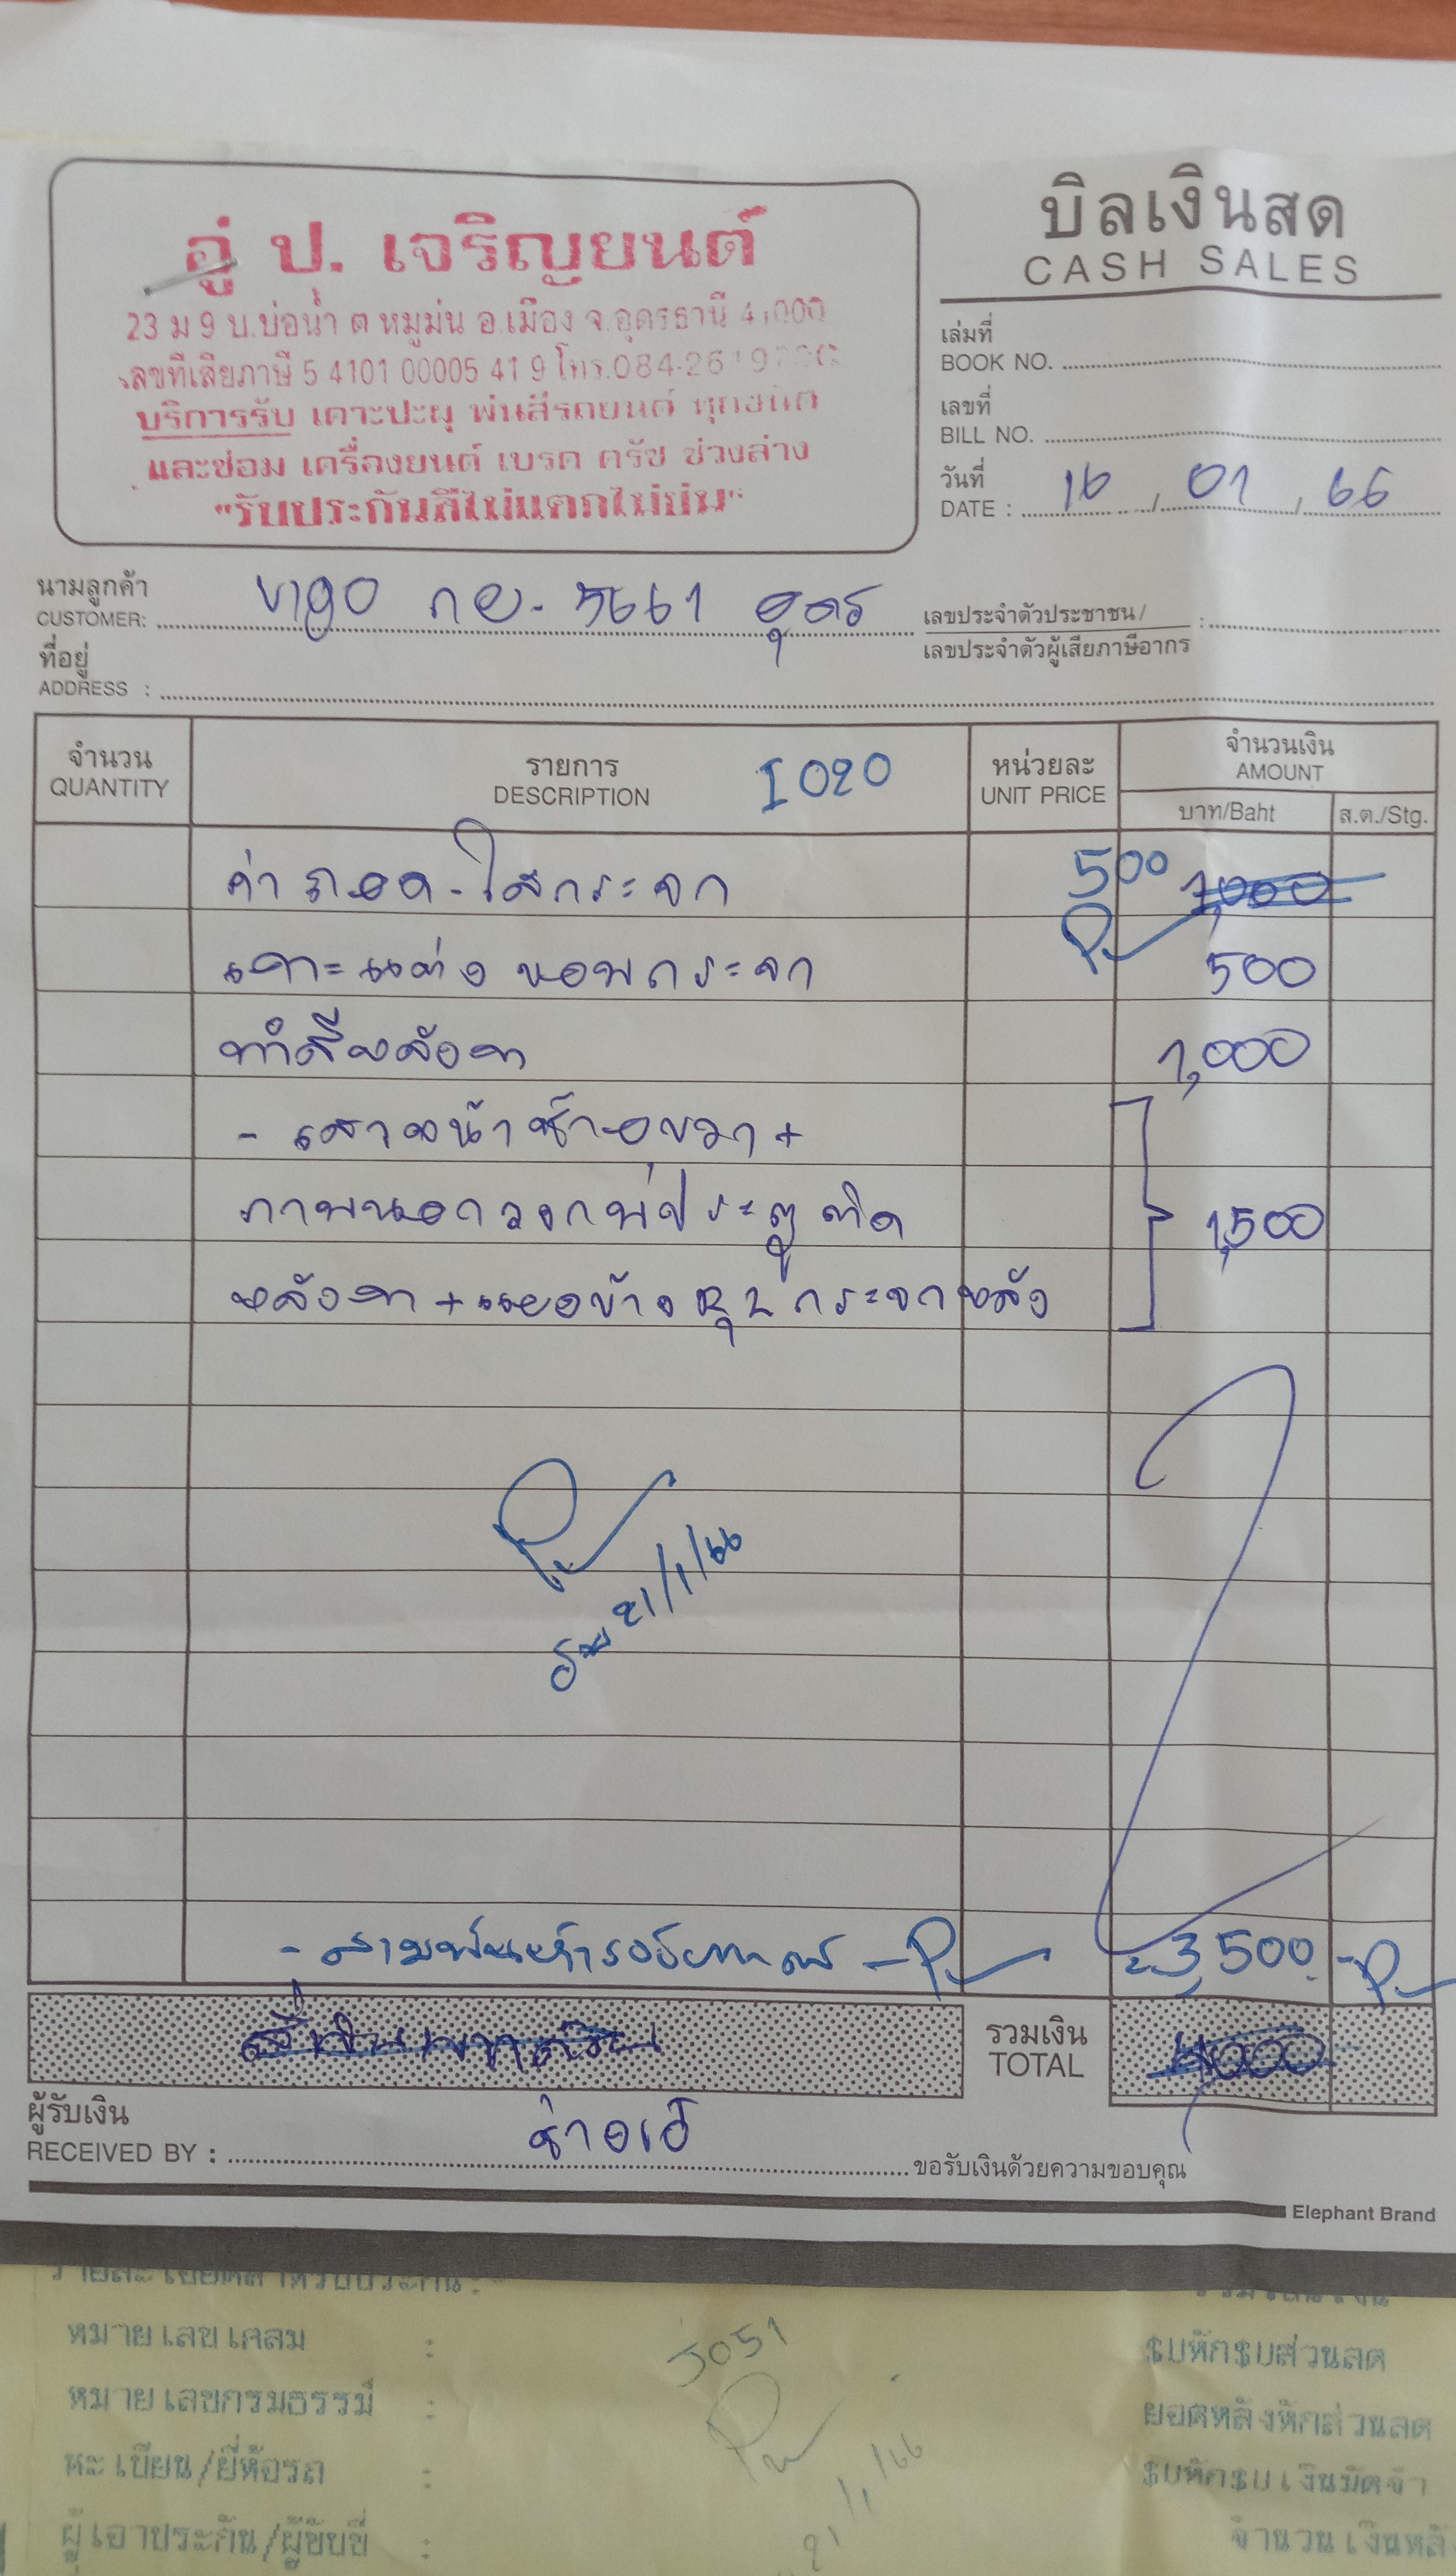 อู่ ป. เจริญยนต์
23 ม 9 บ.บ่อน้ำ ต หมูม่น อ.เมือง จ.อุดรธานี 41000
เลขที่เสียภาษี 5 4101 00005 41 9 โทร.084-2619
บริการรับ เคาะปะผุ พ่นสีรถยนต์ ทุกชนิด
และซ่อม เครื่องยนต์ เบรค ครัช ช่วงล่าง
"รับประกันสีไม่แตกไม่ย่น"
บิลเงินสด
CASH SALES
เล่มที่
BOOK NO.
เลขที่
BILL NO.
วันที่
DATE : 16 / 01 / 66
นามลูกค้า
CUSTOMER: vigo กย- 5661 อุดร
เลขประจำตัวประชาชน /
เลขประจำตัวผู้เสียภาษีอากร :
ที่อยู่
ADDRESS :
จำนวน QUANTITY รายการ DESCRIPTION I 020 หน่วยละ UNIT PRICE จำนวนเงิน AMOUNT
บาท/Baht ส.ต./Stg.
ค่าถอด-ใส่กระจก 500 1,000
เคาะแต่งขอบกระจก 500
ทำสีหลังคา 1,000
- เสาหน้าซ้าย,ขวา +
ภายนอกวงกบประตูติด 1,500
หลังคา + หลัง
21/1/66
- สามพันห้าร้อยบาทถ้วน - 3,500 -
สี่พันบาทถ้วน รวมเงิน TOTAL 4,000
ผู้รับเงิน
RECEIVED BY : ช่างเอ๋ ขอรับเงินด้วยความขอบคุณ
Elephant Brand
หมายเลขเคลม : 5051 หักส่วนลด
หมายเลขกรมธรรม์ : ยอดหลังหักส่วนลด
ทะเบียน/ยี่ห้อรถ : หัก เงินมัดจำ
ผู้เอาประกัน/ผู้ขับขี่ : 21/1/66